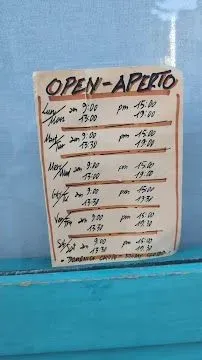 OPEN-APERTO
Lun/ am 9:00 pm 15:00
Mon 13:00 19:00
Mar/ am 9:00 pm 15:00
Tue 13:30 19:00
Mer/ am 9:00 pm 15:00
Wed 13:00 19:00
am 9:00 pm 15:00
13:30 19:30
Ven/ am 9:00 pm 15:00
13:30 19:30
am 9:00 pm 15:00
Sat 13:30 19:30
DOMENICA CHIUSO - SUNDAY CLOSED